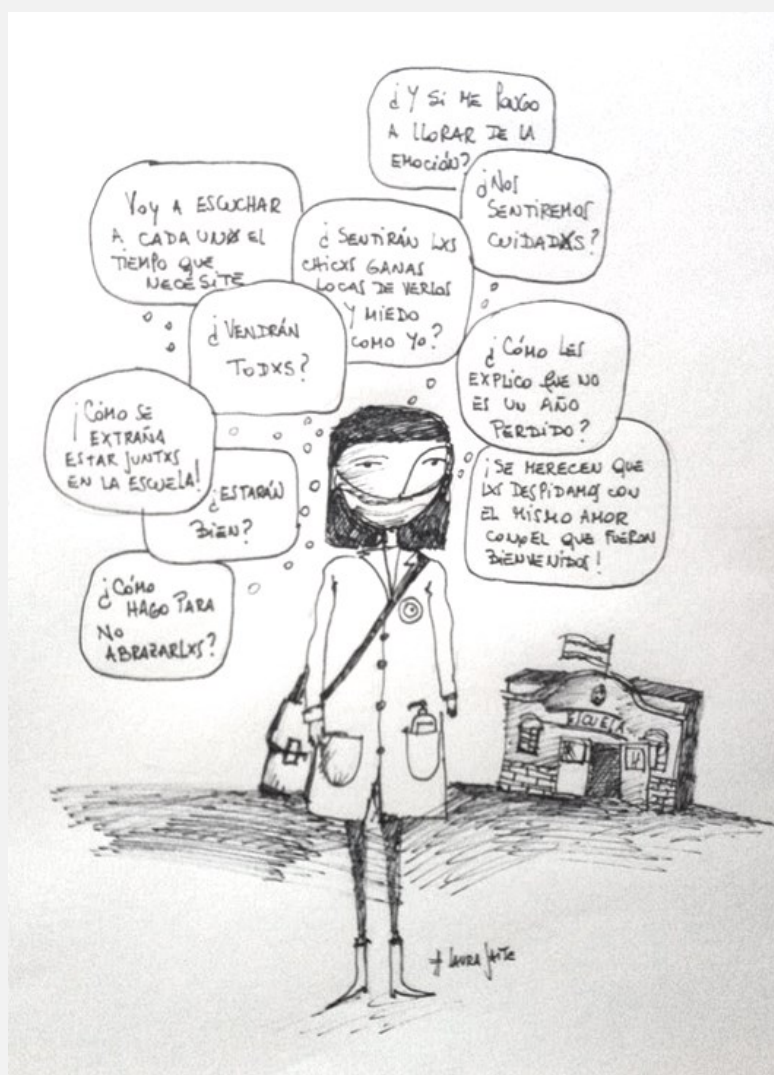 ¿Y SI ME PONGO
A LLORAR DE LA
EMOCIÓN?
¿NOS
SENTIREMOS
CUIDADXS?
VOY A ESCUCHAR
A CADA UNX EL
TIEMPO QUE
NECESITE
¿SENTIRÁN LXS
CHICXS GANAS
LOCAS DE VERLOS
Y MIEDO
COMO YO?
¿VENDRÁN
TODXS?
¿CÓMO LES
EXPLICO QUE NO
ES UN AÑO
PERDIDO?
¡CÓMO SE
EXTRAÑA
ESTAR JUNTXS
EN LA ESCUELA!
¿ESTARÁN
BIEN?
¡SE MERECEN QUE
LXS DESPIDAMOS CON
EL MISMO AMOR
CON EL QUE FUERON
BIENVENIDOS!
¿CÓMO
HAGO PARA
NO
ABRAZARLXS?
ESCUELA
LAURA